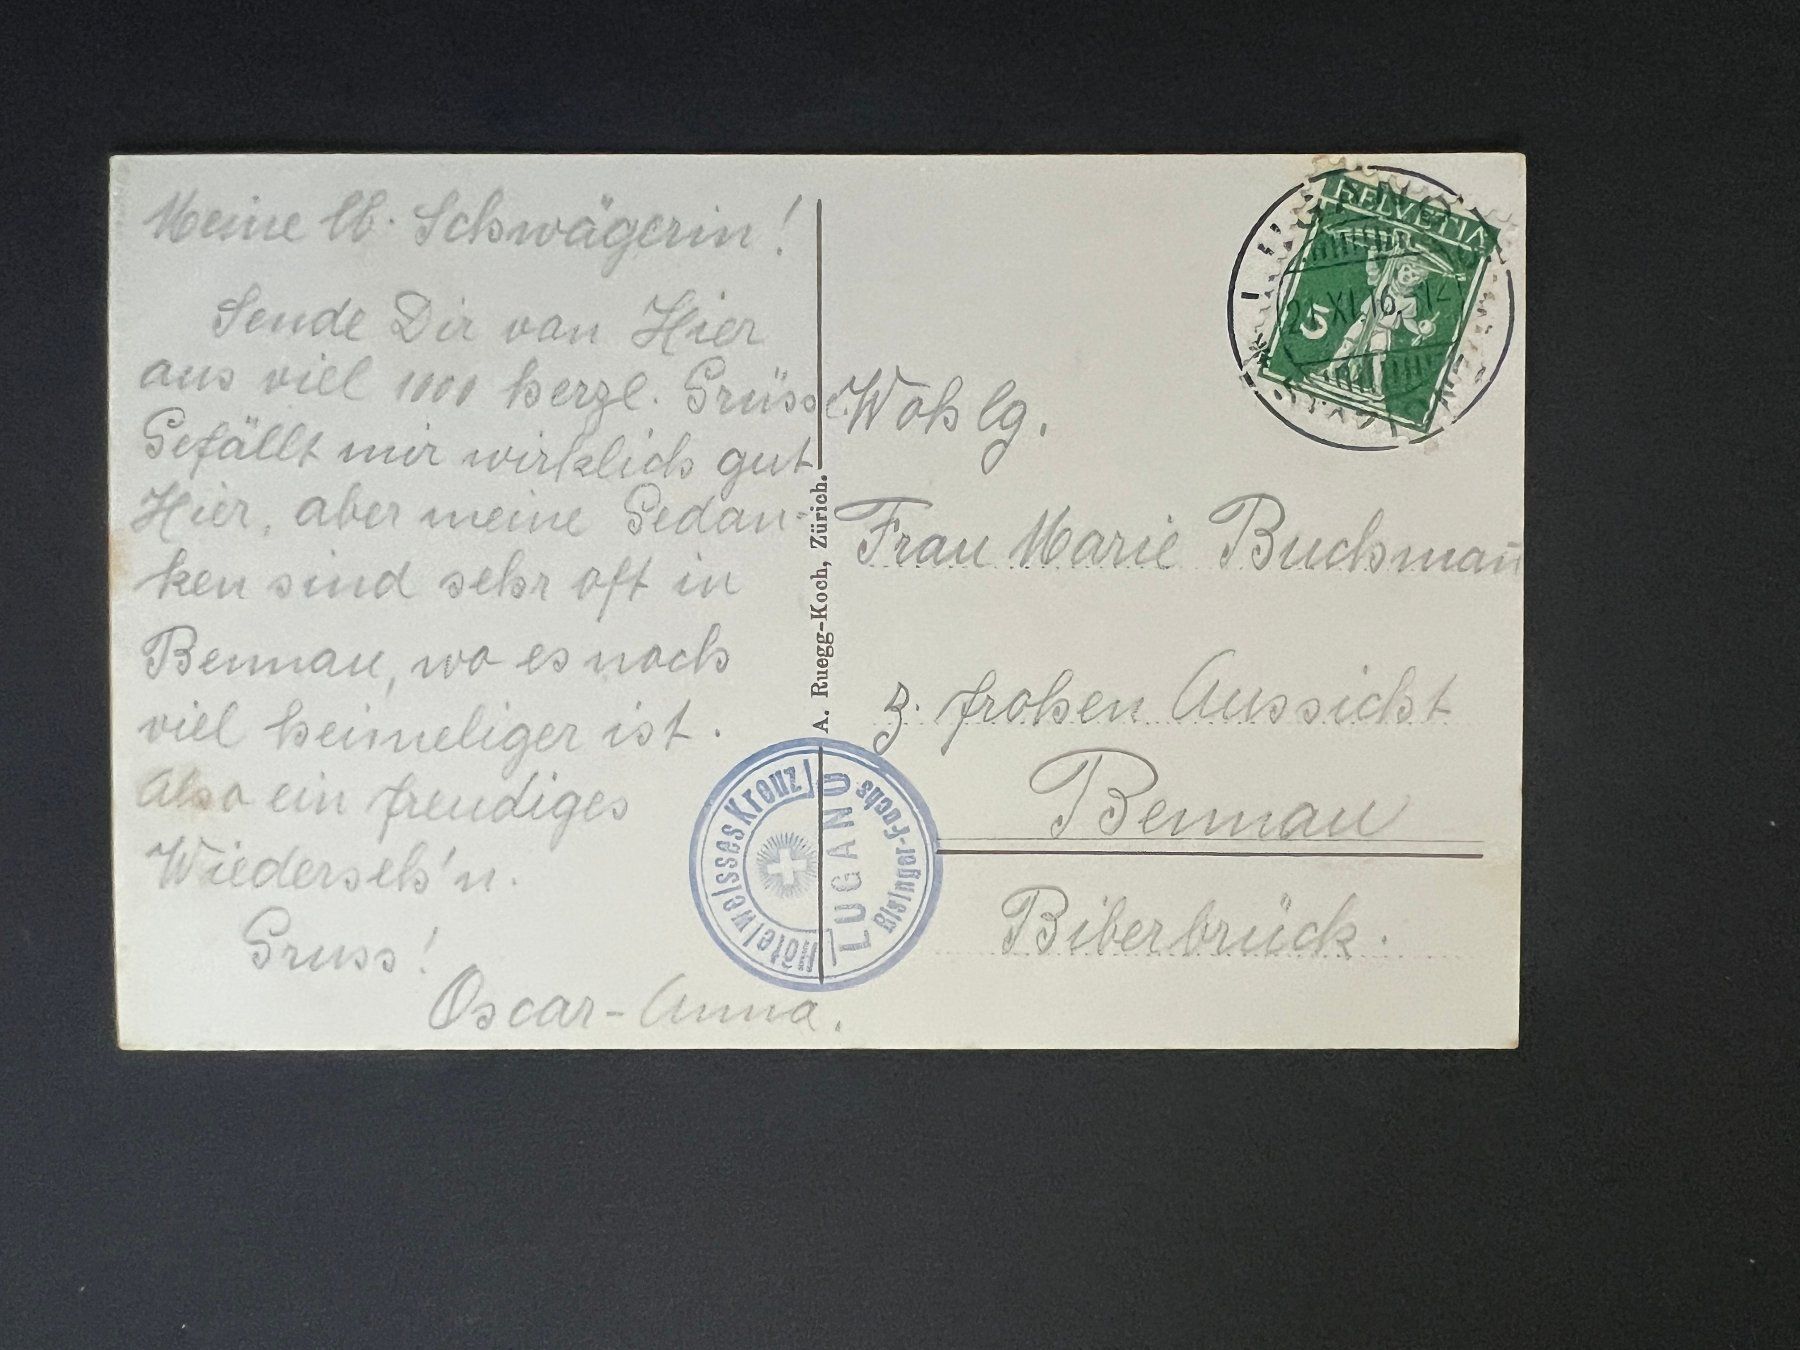 Meine lb. Schwägerin!
Sende Dir von Hier
aus viel 1000 herzl. Grüsse.
Gefällt mir wirklich gut
Hier, aber meine Gedan-
ken sind sehr oft in
Bennau, wo es noch
viel heimeliger ist.
Also ein freudiges
Wiederseh'n.
Gruss!
Oscar-Anna.
A. Ruegg-Koch, Zürich.
Hôtel weisses Kreuz
LUGANO
Risinger-Fuchs
HELVETIA
5
LUGANO
21.XI.16.
Wohlg.
Frau Marie Buchman̄
z. frohen Aussicht
Bennau
Biberbrück.